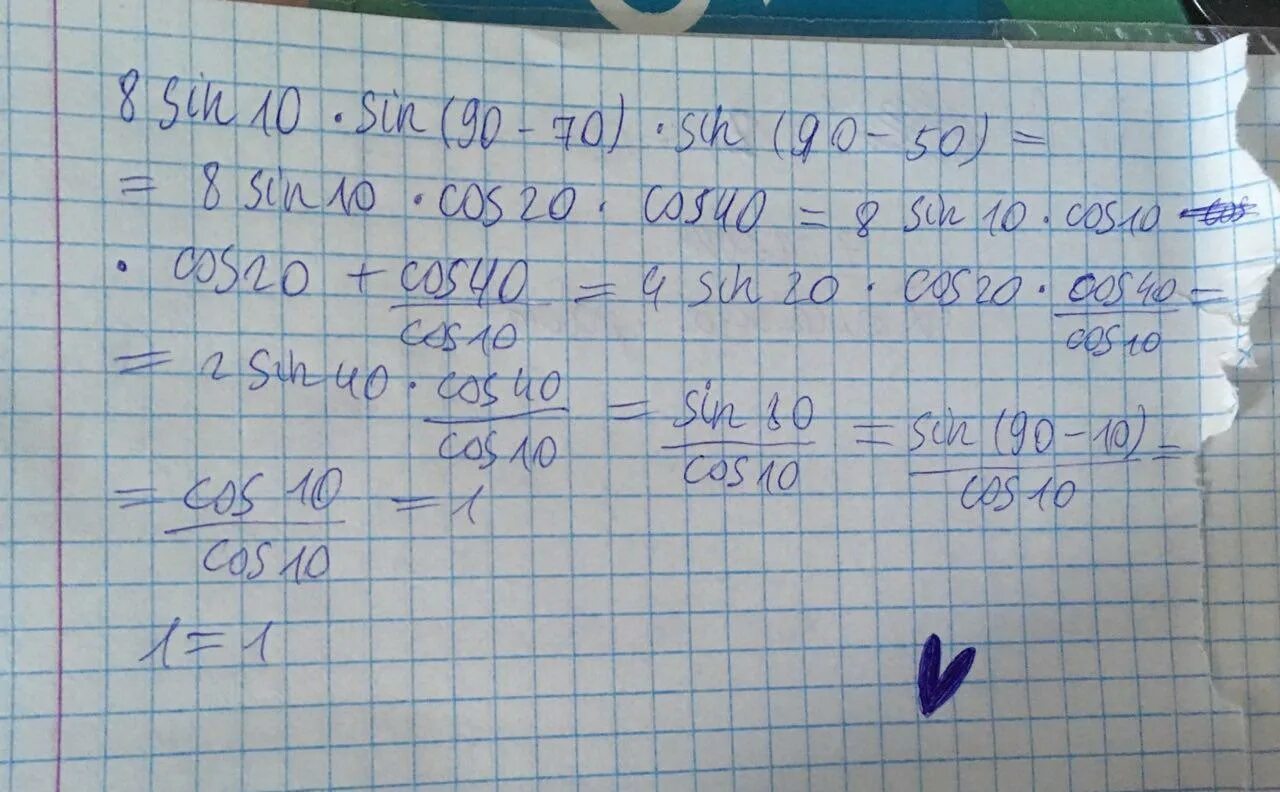 8 sin 10 · sin (90 - 70) · sin (90 - 50) =
= 8 sin 10 · cos 20 · cos 40 = 8 sin 10 · cos 10
· cos 20 + cos 40 / cos 10 = 4 sin 20 · cos 20 · cos 40 / cos 10 =
= 2 sin 40 · cos 40 / cos 10 = sin 80 / cos 10 = sin (90 - 10) / cos 10 =
= cos 10 / cos 10 = 1
1 = 1